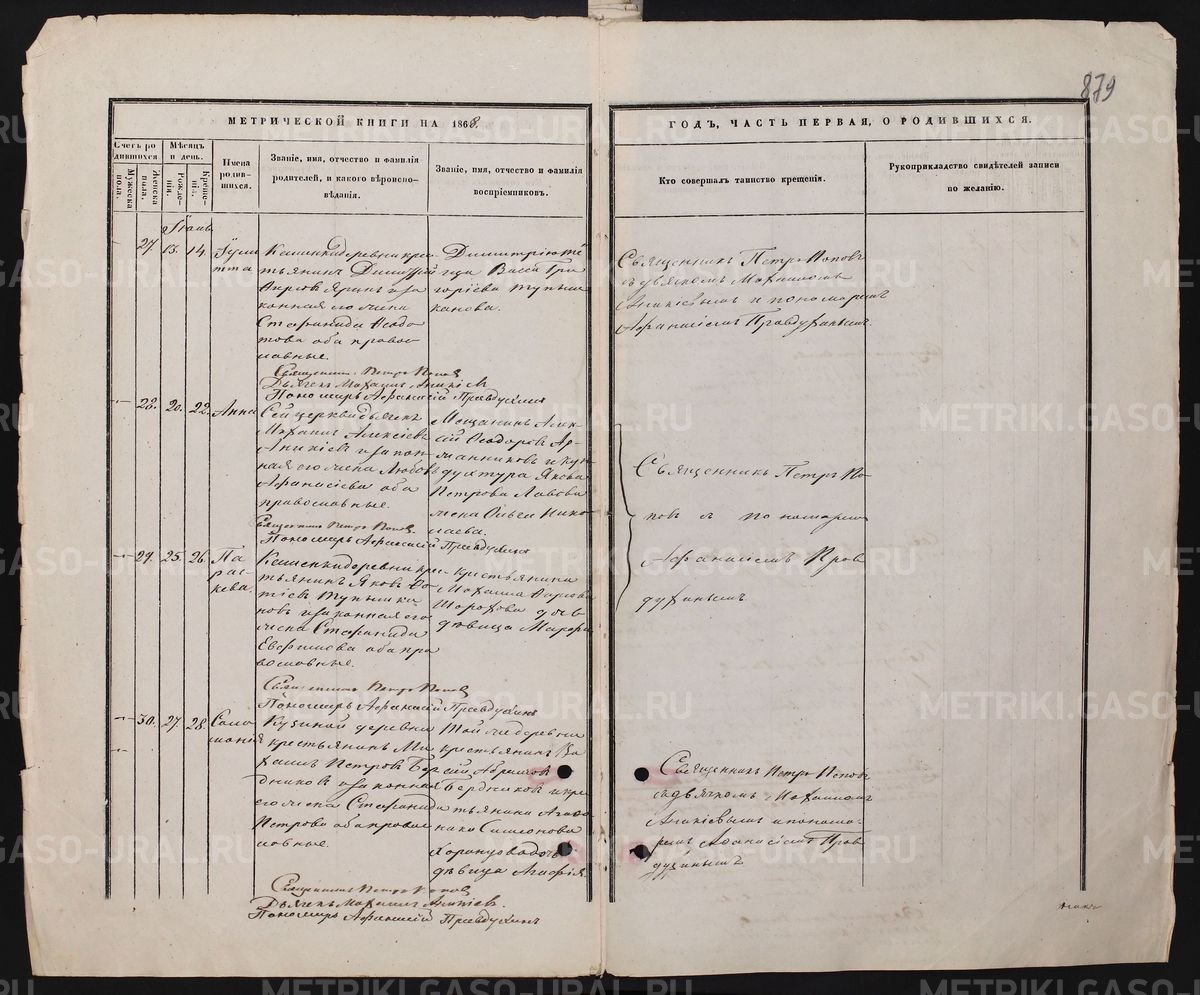 879
МЕТРИЧЕСКОЙ КНИГИ НА 1868.
ГОДЪ, ЧАСТЬ ПЕРВАЯ, О РОДИВШИХСЯ.
Счетъ родившихся
Мѣсяцъ и день.
Мужеска пола.
Женска пола.
Рожденія.
Крещенія.
Имена родившихся.
Званіе, имя, отчество и фамилія
родителей, и какого вѣроисповѣданія.
Званіе, имя, отчество и фамилія
воспріемниковъ.
Кто совершалъ таинство крещенія.
Рукоприкладство свидѣтелей записи
по желанію.
27 13. 14. Іулитта
деревни крестьянинъ Димитрій
и законная его жена
Стефанида
оба православные.
Васса Григоріева
Священникъ Петръ Поповъ
съ дьячкомъ Михаиломъ
Аникіевымъ и пономаремъ
Афанасіемъ Правдухинымъ.
Священникъ Петръ Поповъ
Дьячекъ Михаилъ Аникіевъ
Пономарь Афанасій Правдухинъ
28. 20. 22. Анна
Сей церкви дьячекъ
Михаилъ Алексіевъ
Аникіевъ и законная его жена Любовь
Афанасіева оба
православные.
Мѣщанинъ Алексій Ѳеодоровъ
Якова
Петрова
жена Ольга Николаева.
Священникъ Петръ Поповъ
Пономарь Афанасій Правдухинъ
Священникъ Петръ Поповъ съ пономаремъ
Афанасіемъ Правдухинымъ.
29. 25. 26. Параскева.
деревни крестьянинъ Яковъ
и законная его
жена Стефанида
Евфимова оба православные.
крестьянина
Михаила
дочь
дѣвица Марфа
Священникъ Петръ Поповъ
Пономарь Афанасій Правдухинъ
30. 27. 28. Соломонія
Кузиной деревни
крестьянинъ Михаилъ Петровъ Бердниковъ и законная
его жена Стефанида
Петрова оба православные.
Той же деревни
крестьянинъ
Бердниковъ и крестьянина
Симеонова
дочь
дѣвица Агафія.
Священникъ Петръ Поповъ
съ дьячкомъ Михаиломъ
Аникіевымъ и пономаремъ Афанасіемъ Правдухинымъ
Священникъ Петръ Поповъ
Дьячекъ Михаилъ Аникіевъ
Пономарь Афанасій Правдухинъ
METRIKI.GASO-URAL.RU